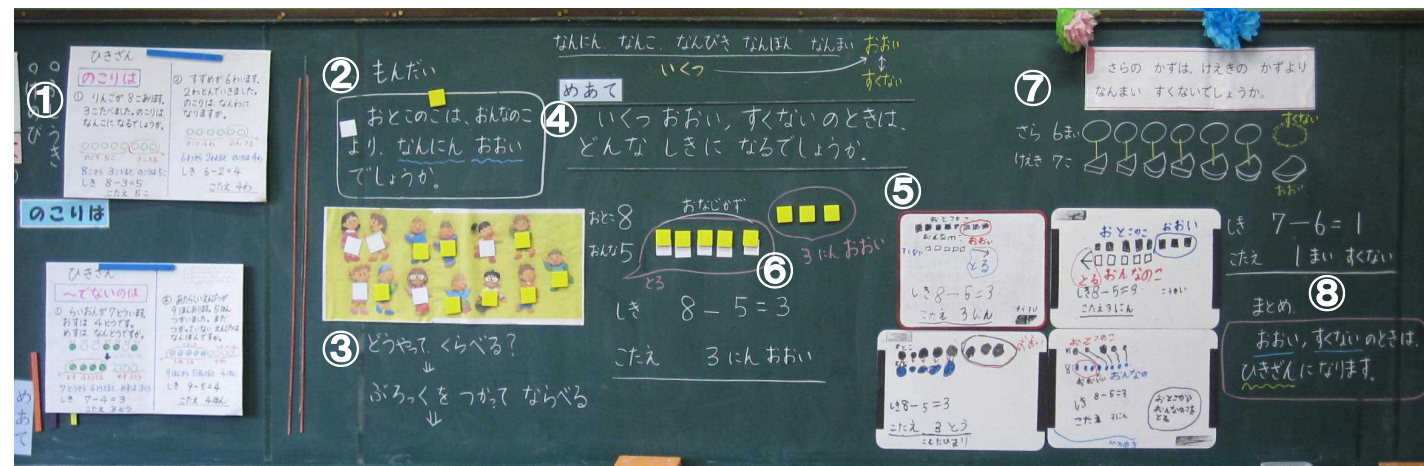 ①
ひきざん
のこりは
① りんごが 8こあります。
3こたべました。のこりは
なんこに なるでしょうか。
しき 8-3=5
こたえ 5こ
② すずめが 6わいます。
2わとんでいきました。
のこりは なんわに
なりますか。
しき 6-2=4
こたえ 4わ
のこりは
ひきざん
～でないのは
① らいおんが 7とういます。
おすは 4とうです。
めすは なんとうですか。
しき 7-4=3
こたえ 3とう
しき 9-5=4
こたえ 4ほん
めあて
②
もんだい
おとこのこは、おんなのこ
より、なんにん おおい
でしょうか。
③
どうやって くらべる?
↓
ぶろっくを つかって ならべる
↓
なんにん なんこ なんびき なんぼん なんまい おおい
いくつ
すくない
④
めあて
いくつ おおい, すくない のときは、
どんな しきに なるでしょうか。
おとこ8
おんな5
おなじかず
とる
3にん おおい
⑥
しき 8-5=3
こたえ 3にん おおい
⑤
おとこのこ
おおい
とる
しき 8-5=3
こたえ 3にん
おとこのこ おおい
とる おんなのこ
しき8-5=3
こたえ3にん
しき8-5=3
こたえ 3とう
しき 8-5=3
こたえ 3にん
⑦
さらの かずは、けえきの かずより
なんまい すくないでしょうか。
さら 6まい
すくない
けえき 7こ
おおい
しき 7-6=1
こたえ 1まい すくない
⑧
まとめ
おおい, すくない のときは、
ひきざん に なります。